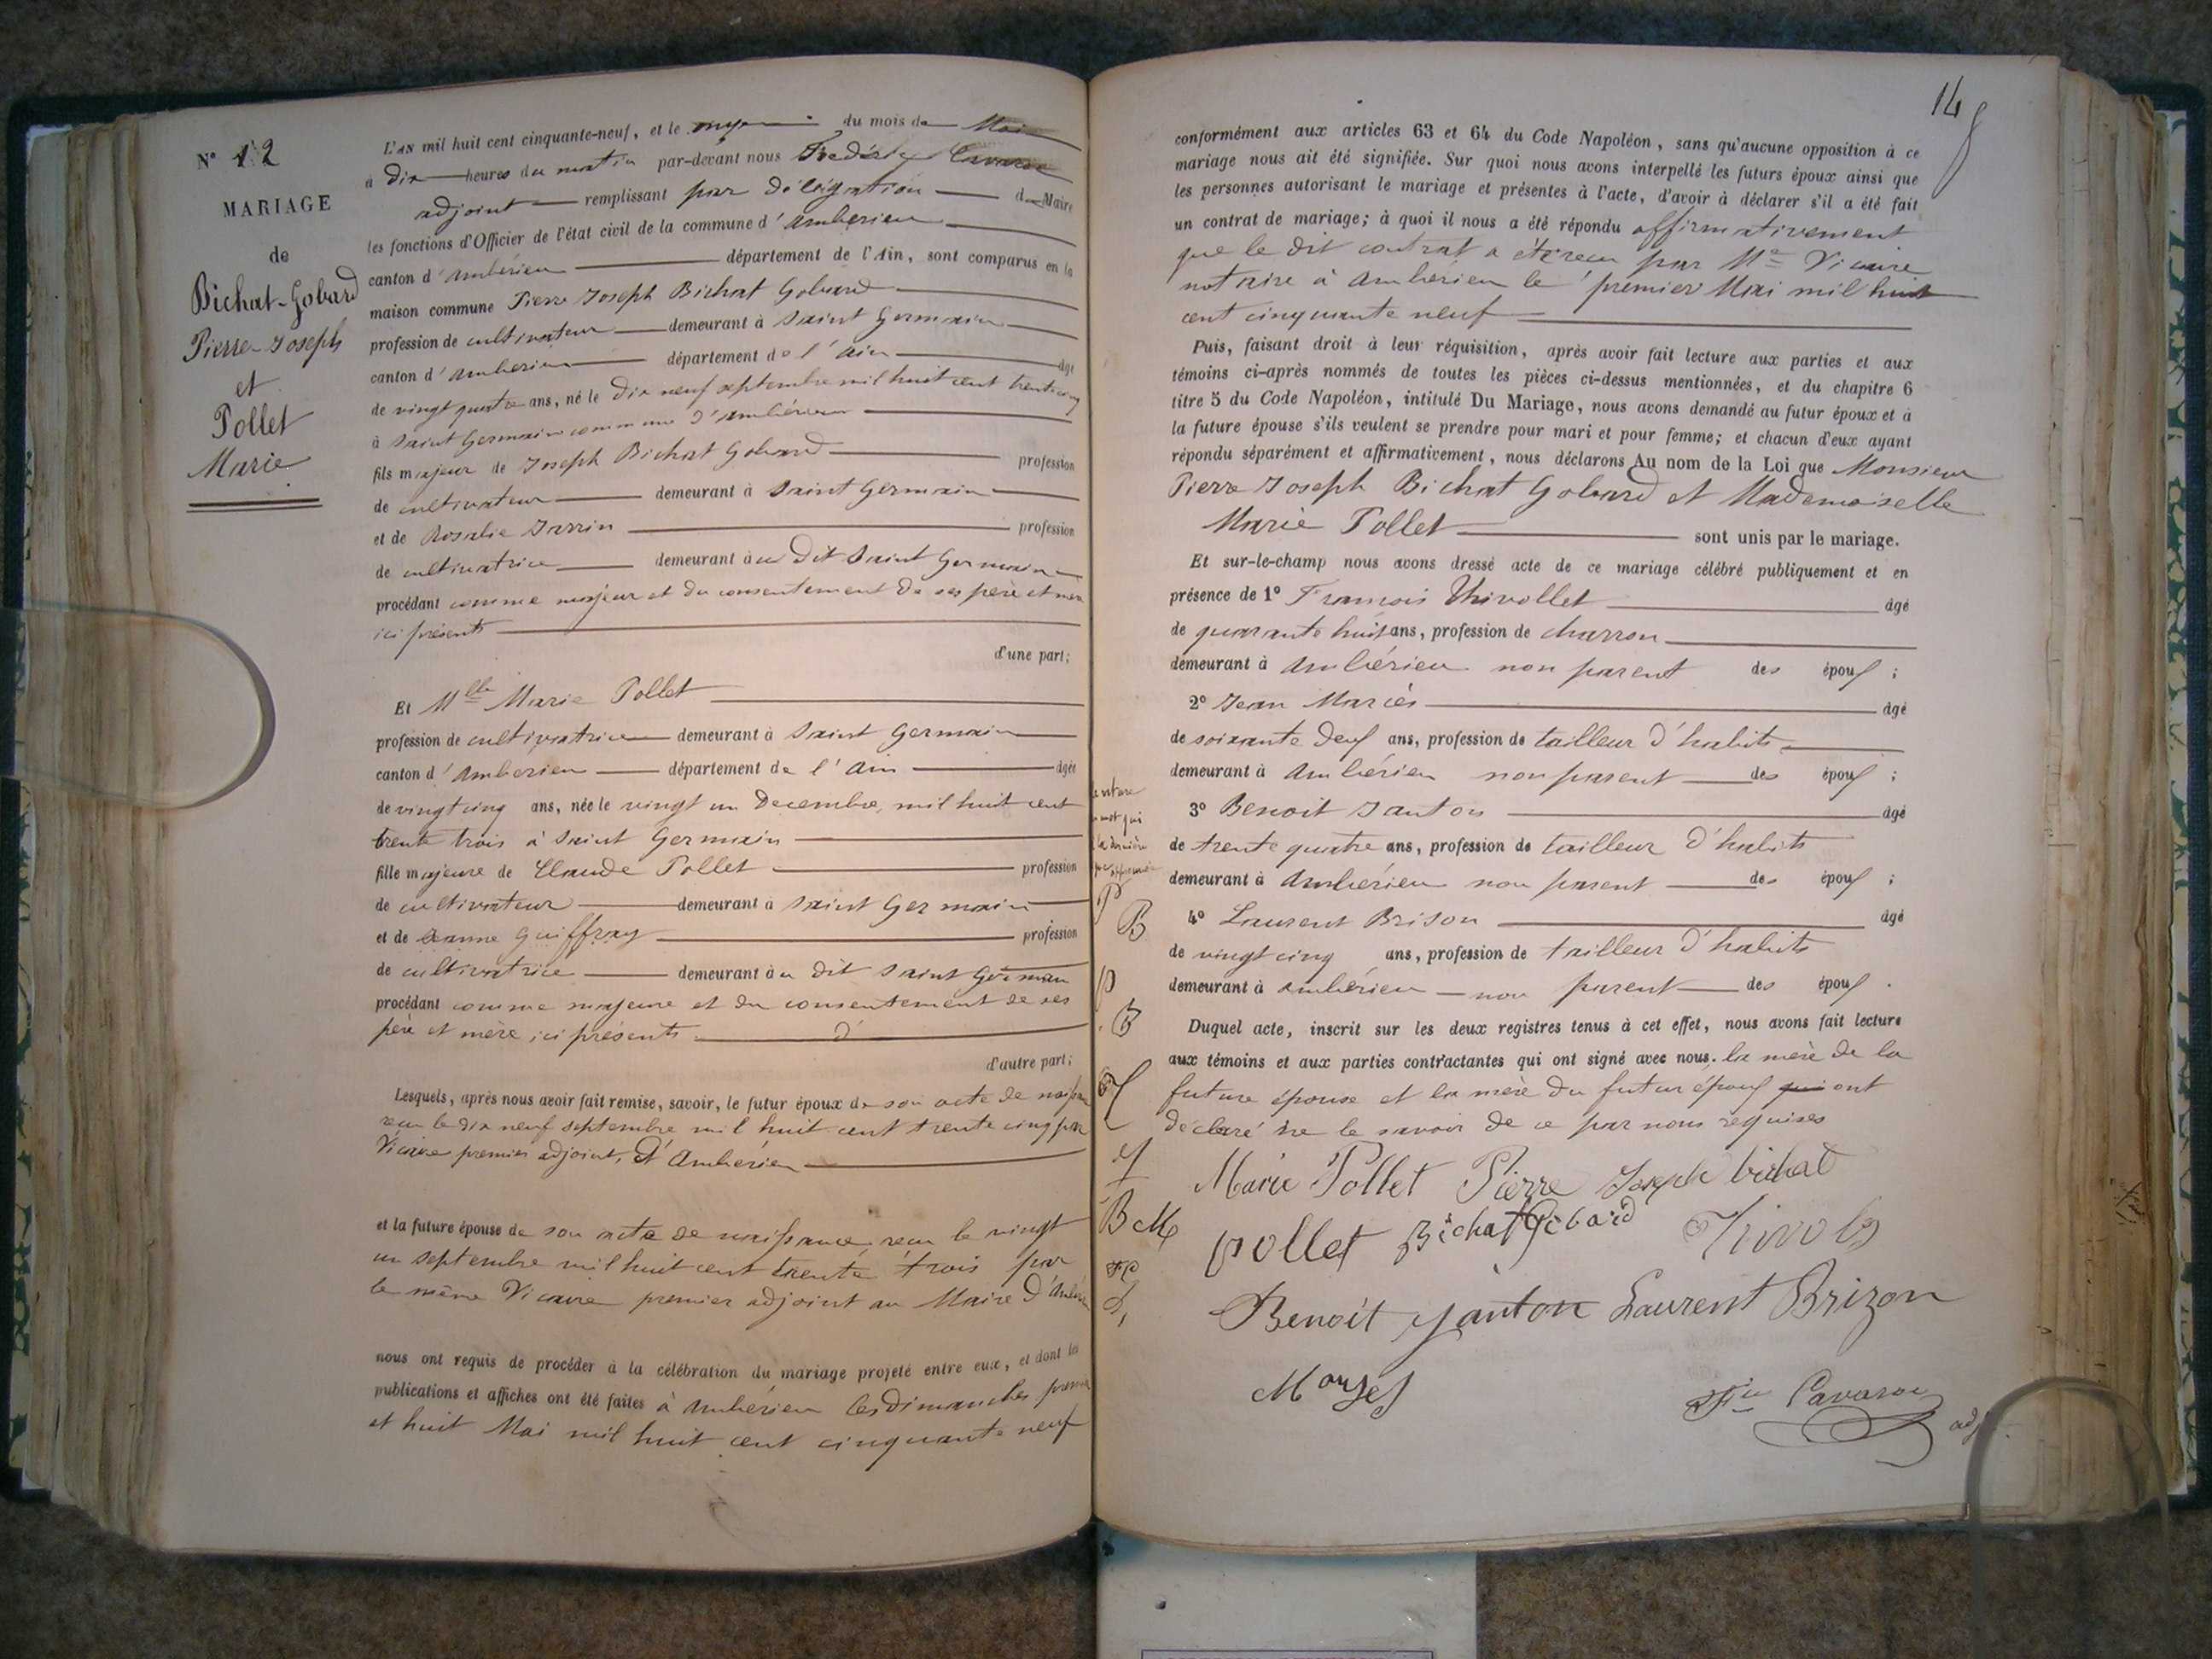 N° 12
MARIAGE
de
Bichat-Gobard
Pierre-Joseph
et
Pollet
Marie
L'AN mil huit cent cinquante-neuf, et le onze du mois de Mai
à dix heures du matin par-devant nous Frédéric Cavaroc
adjoint remplissant par délégation du Maire
les fonctions d'Officier de l'état civil de la commune d'Ambérieu
canton d'Ambérieu département de l'Ain, sont comparus en la
maison commune Pierre Joseph Bichat Gobard
profession de cultivateur demeurant à Saint Germain
canton d'Ambérieu département de l'Ain âgé
de vingt quatre ans, né le dix neuf septembre mil huit cent trente cinq
à Saint Germain commune d'Ambérieu
fils majeur de Joseph Bichat Gobard profession
de cultivateur demeurant à Saint Germain
et de Rosalie Jarrin profession
de cultivatrice demeurant au dit Saint Germain
procédant comme majeur et du consentement de ses père et mère
ici présents
d'une part;
Et Mlle Marie Pollet
profession de cultivatrice demeurant à Saint Germain
canton d'Ambérieu département de l'Ain âgée
de vingt cinq ans, née le vingt un Decembre, mil huit cent
trente trois à Saint Germain
fille majeure de Claude Pollet profession
de cultivateur demeurant à Saint Germain
et de Jeanne Guiffray profession
de cultivatrice demeurant au dit Saint Germain
procédant comme majeure et du consentement de ses
père et mère, ici présents
d'autre part;
Lesquels, après nous avoir fait remise, savoir, le futur époux de son acte de naissance
reçu le dix neuf septembre mil huit cent trente cinq par
Vicaire premier adjoint, d'Ambérieu
et la future épouse de son acte de naissance, reçu le vingt
un septembre mil huit cent trente trois par
le même Vicaire premier adjoint au Maire d'Ambérieu
nous ont requis de procéder à la célébration du mariage projeté entre eux, et dont les
publications et affiches ont été faites à Ambérieu les dimanches premier
et huit Mai mil huit cent cinquante neuf
14
conformément aux articles 63 et 64 du Code Napoléon, sans qu'aucune opposition à ce
mariage nous ait été signifiée. Sur quoi nous avons interpellé les futurs époux ainsi que
les personnes autorisant le mariage et présentes à l'acte, d'avoir à déclarer s'il a été fait
un contrat de mariage; à quoi il nous a été répondu affirmativement
que le dit contrat a été reçu par Me Vicaire
notaire à Ambérieu le premier Mai mil huit
cent cinquante neuf
Puis, faisant droit à leur réquisition, après avoir fait lecture aux parties et aux
témoins ci-après nommés de toutes les pièces ci-dessus mentionnées, et du chapitre 6
titre 5 du Code Napoléon, intitulé Du Mariage, nous avons demandé au futur époux et à
la future épouse s'ils veulent se prendre pour mari et pour femme; et chacun d'eux ayant
répondu séparément et affirmativement, nous déclarons Au nom de la Loi que Monsieur
Pierre Joseph Bichat Gobard et Mademoiselle
Marie Pollet sont unis par le mariage.
Et sur-le-champ nous avons dressé acte de ce mariage célébré publiquement et en
présence de 1° François Thivollet âgé
de quarante huit ans, profession de charron
demeurant à Ambérieu non parent des époux ;
2° Jean Marcès âgé
de soixante deux ans, profession de tailleur d'habits
demeurant à Ambérieu non parent des époux ;
3° Benoit Janton âgé
de trente quatre ans, profession de tailleur d'habits
demeurant à Ambérieu non parent des époux ;
4° Laurent Brison âgé
de vingt cinq ans, profession de tailleur d'habits
demeurant à Ambérieu non parent des époux .
Duquel acte, inscrit sur les deux registres tenus à cet effet, nous avons fait lecture
aux témoins et aux parties contractantes qui ont signé avec nous. la mère de la
future épouse et la mère du futur époux qui ont
déclaré ne le savoir de ce par nous requises
Marie Pollet Pierre Joseph bichat
pollet Bichat Gobard
Benoit Janton Laurent Brizon
Cavaroc adj.